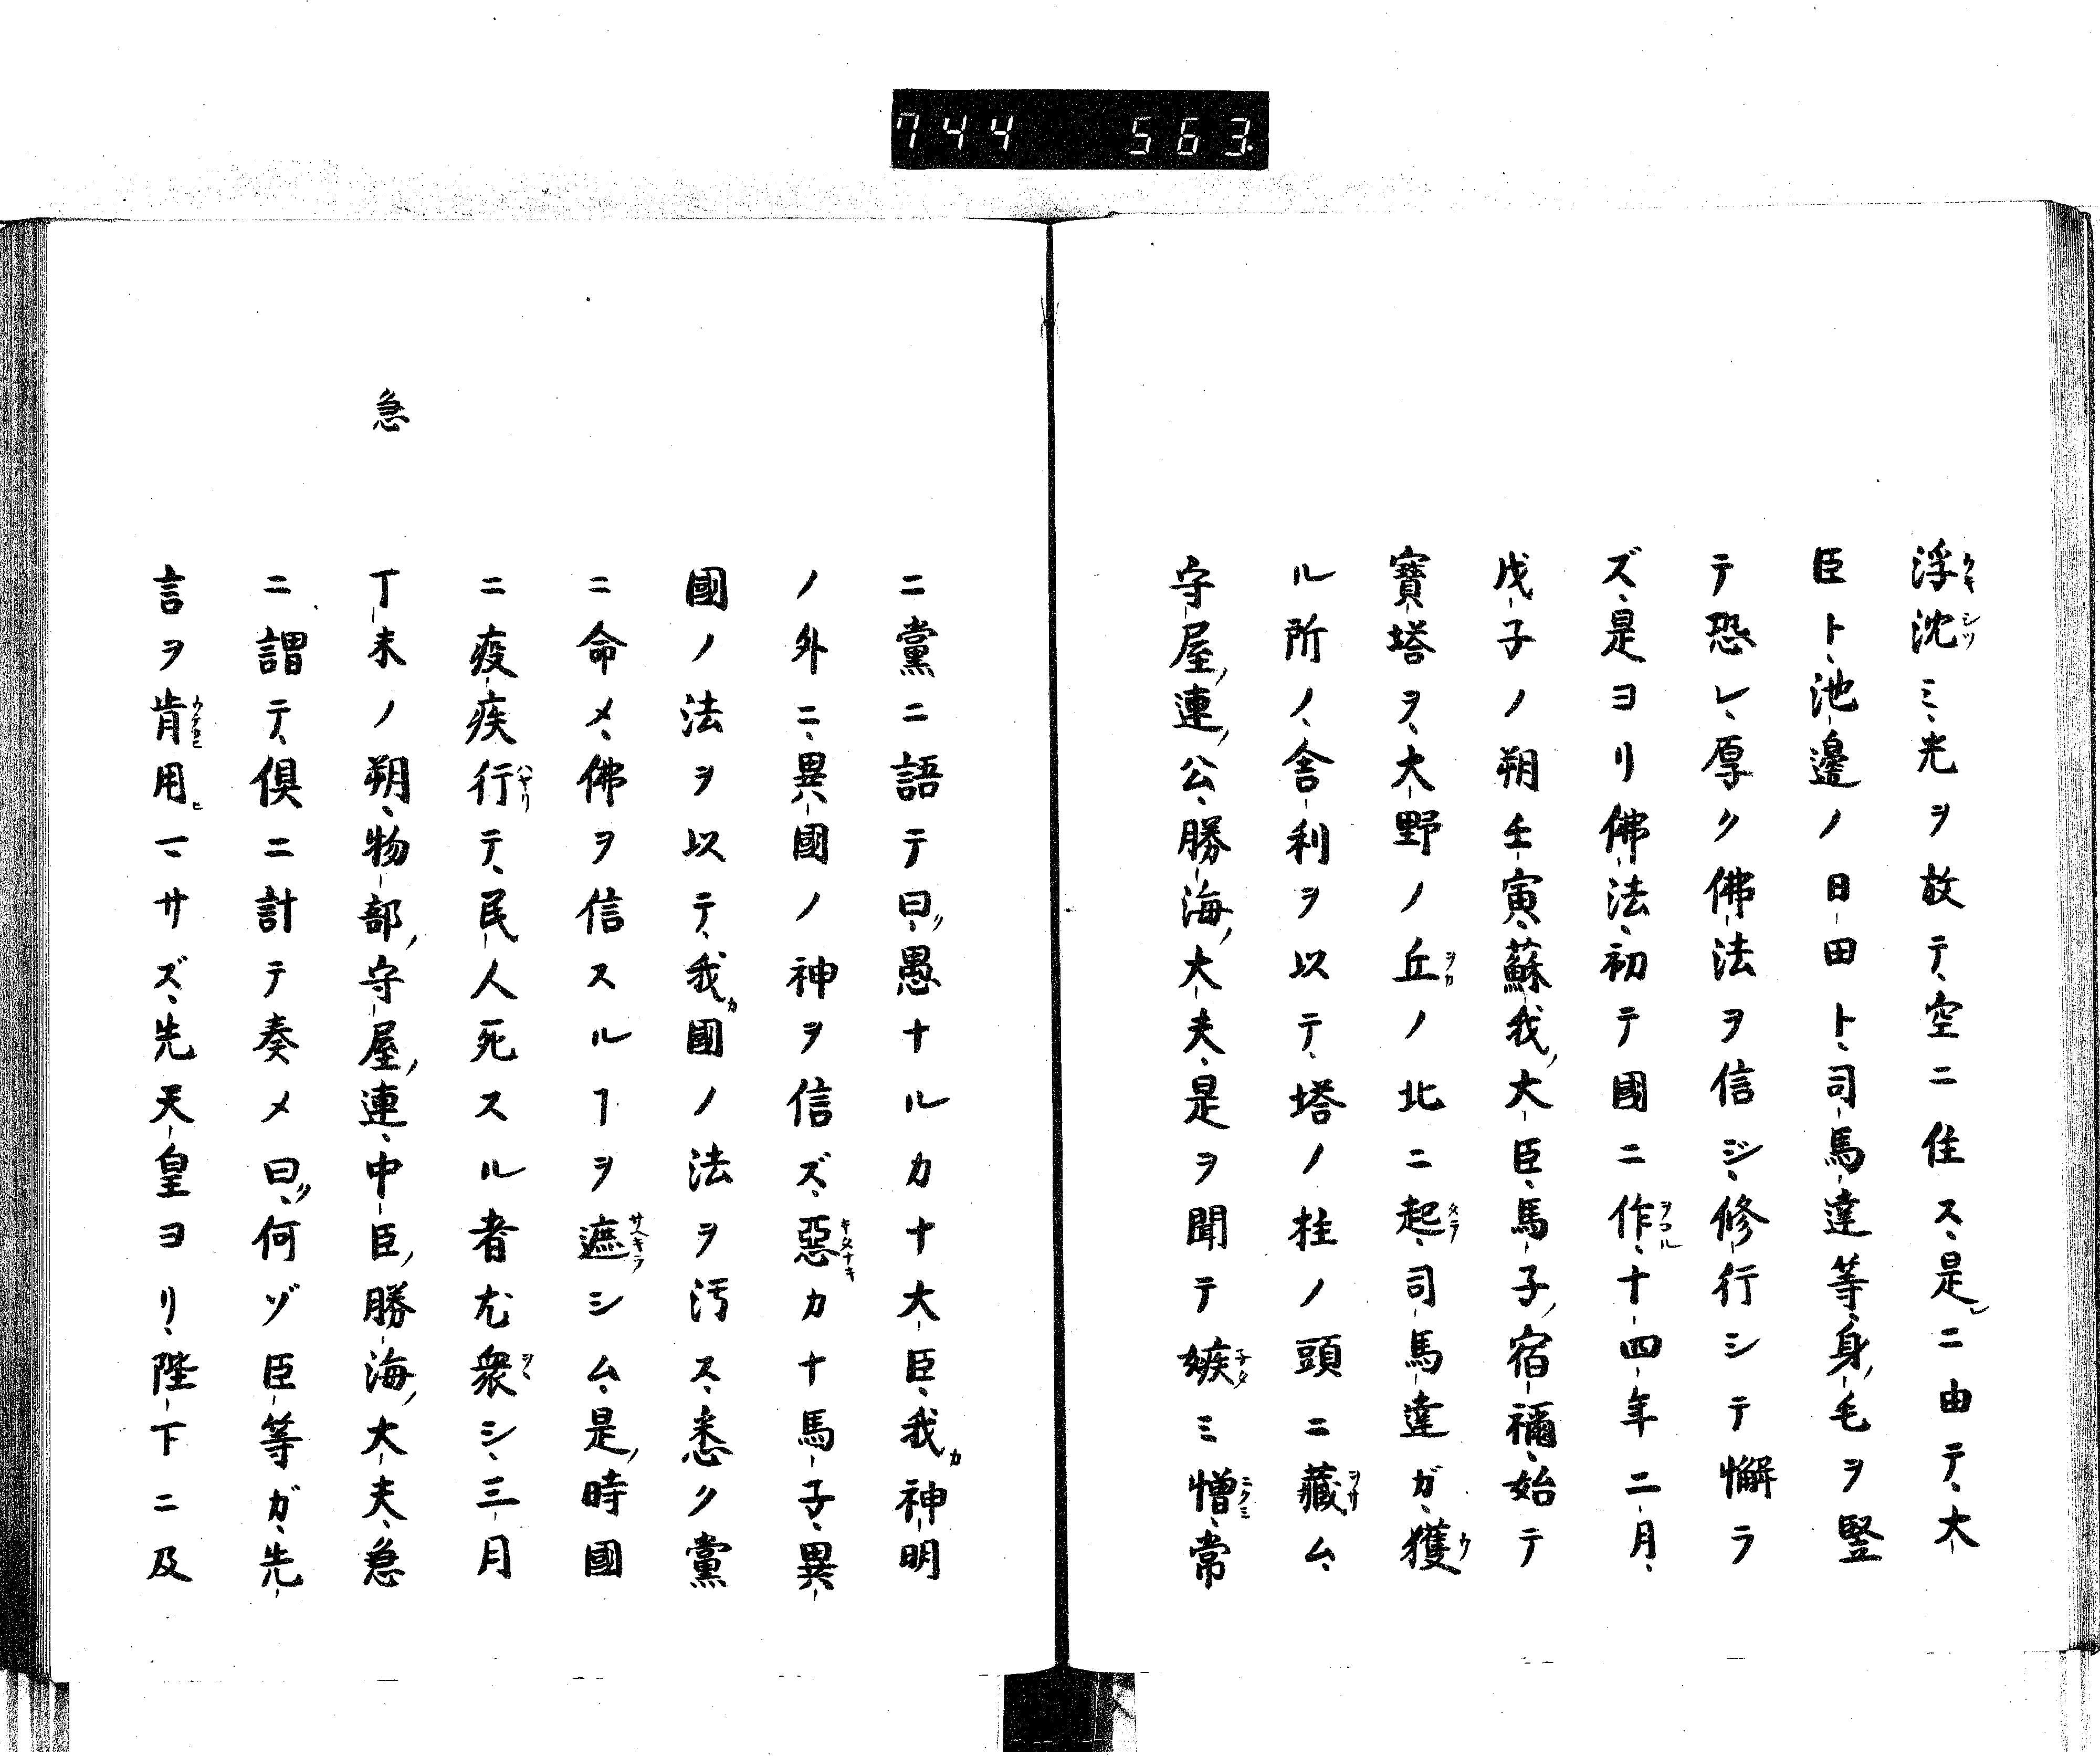 744 563.
浮沈ミ、光ヲ放テ、空ニ住ス、是ニ由テ、大
臣ト、池邊ノ日田ト、司馬達等、身ノ毛ヲ竪
テ恐レ、厚ク佛法ヲ信ジ、修行シテ懈ラ
ズ、是ヨリ佛法、初テ國ニ作ヲコル、十四年二月、
戊子ノ朔壬寅、蘇我ノ大臣、馬子ノ宿禰、始テ
寶塔ヲ、大野ノ丘ヲカノ北ニ起タテ、司馬達ガ、獲ウ
ル所ノ、舎利ヲ以テ、塔ノ柱ノ頭ニ藏ヲサム、
守屋ノ連ノ公、勝海ノ大夫、是ヲ聞テ嫉子タミ憎ニクミ、常
ニ黨ニ語テ曰ク、愚ナルカナ大臣、我カ神明
ノ外ニ、異國ノ神ヲ信ズ、惡キタナキカナ馬子、異
國ノ法ヲ以テ、我カ國ノ法ヲ汚ス、悉ク黨
ニ命メ、佛ヲ信スルヿヲ遮サヘキラシム、是ノ時國
ニ疫疾行ハヤリテ、民人死スル者尤衆ヲヽシ、三月
丁未ノ朔、物部ノ守屋ノ連、中臣ノ勝海ノ大夫、急
急
ニ謂テ、倶ニ計テ奏メ曰ク、何ゾ臣等ガ、先
言ヲ肯用ヒマサズ、先天皇ヨリ、陛下ニ及